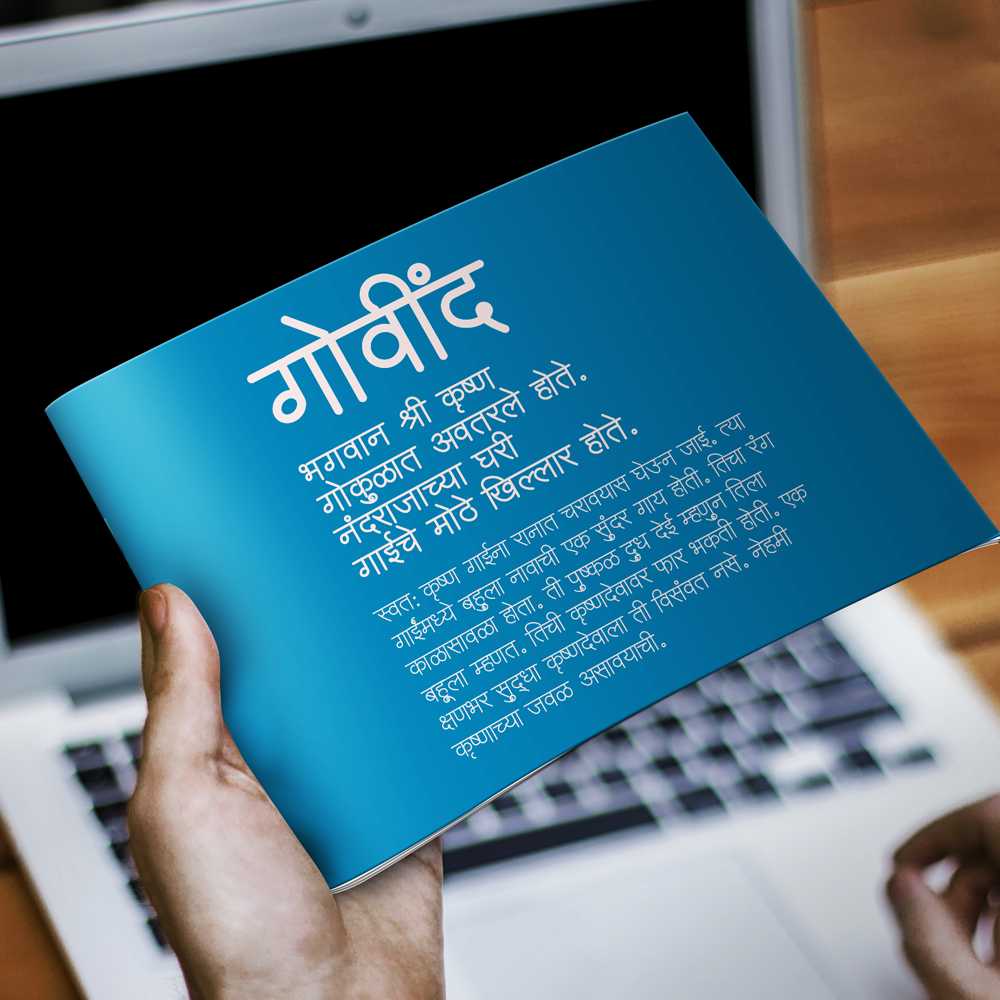 गोवींद
भगवान श्री कृष्ण
गोकुळात अवतरले होते.
नंदराजाच्या घरी
गाईचे मोठे खिल्लार होते.
स्वत: कृष्ण गाईना रानात चरावयास घेउन जाई. त्या
गाईंमध्ये बहुला नावाची एक सुंदर गाय होती. तिचा रंग
काळासावळा होता. ती पुष्कळ दुध देई म्हणुन तिला
बहूला म्हणत. तिची कृष्णदेवावर फार भक्ती होती. एक
क्षणभर सुद्धा कृष्णदेवाला ती विसंवत नसे. नेहमी
कृष्णाच्या जवळ असावयाची.